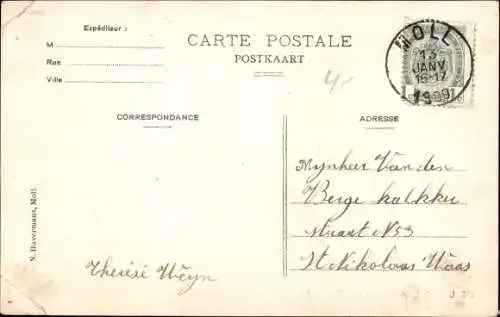 Expéditeur :
M
Rue
Ville
CARTE POSTALE
POSTKAART
MOLL
13
JANV
16-17
1909
4-
CORRESPONDANCE
ADRESSE
Mynheer Van den
Berge kalkker
straat N 53
St Nikolaas Waas
Therésé Weyn
N. Havermans, Moll.